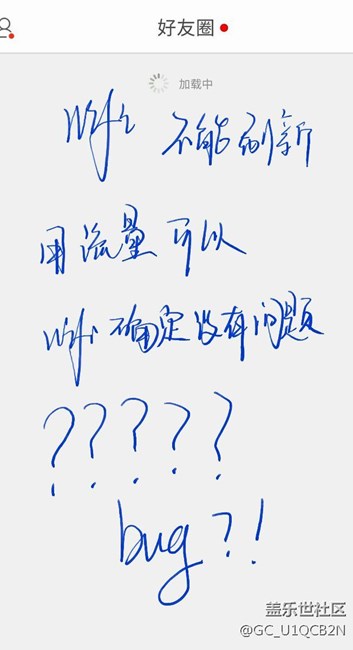 好友圈
加载中
wifi 不能刷新
用流量可以
wifi 确定没有问题
?????
bug?!
盖乐世社区
@GC_U1QCB2N